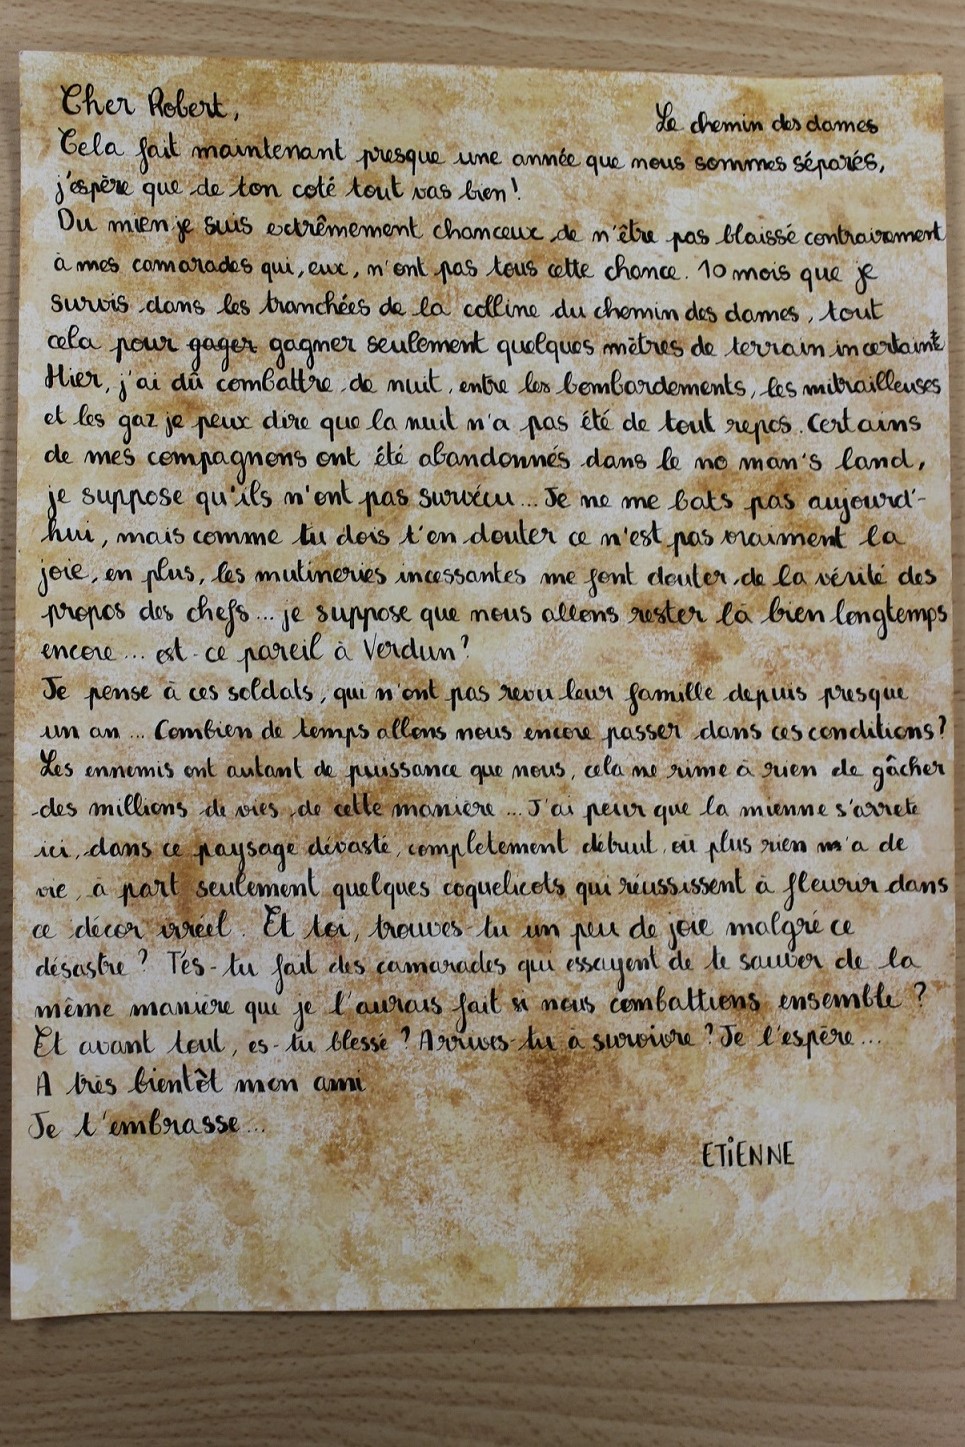 Cher Robert,
Le chemin des dames
Cela fait maintenant presque une année que nous sommes séparés,
j'espère que de ton coté tout vas bien !
Du mien je suis extrêmement chanceux de n'être pas blaissé contrairement
à mes camarades qui, eux, n'ont pas tous cette chance. 10 mois que je
survis dans les tranchées de la colline du chemin des dames, tout
cela pour gager gagner seulement quelques mètres de terrain incertain
Hier, j'ai dû combattre de nuit, entre les bombardements, les mitrailleuses
et les gaz je peux dire que la nuit n'a pas été de tout repos. Certains
de mes compagnons ont été abandonnés dans le no man's land,
je suppose qu'ils n'ont pas survécu... Je ne me bats pas aujourd'-
hui, mais comme tu dois t'en douter ce n'est pas vraiment la
joie, en plus, les mutineries incessantes me font douter de la vérité des
propos des chefs... je suppose que nous allons rester là bien longtemps
encore... est-ce pareil à Verdun ?
Je pense à ces soldats, qui n'ont pas revu leur famille depuis presque
un an... Combien de temps allons nous encore passer dans ces conditions ?
Les ennemis ont autant de puissance que nous, cela ne rime à rien de gâcher
des millions de vies de cette manière... J'ai peur que la mienne s'arrete
ici, dans ce paysage dévasté, completement détruit, où plus rien n'a de
vie, à part seulement quelques coquelicots qui réussissent à fleurir dans
ce décor irréel. Et toi, trouves-tu un peu de joie malgré ce
désastre ? T'es-tu fait des camarades qui essayent de te sauver de la
même manière que je l'aurais fait si nous combattions ensemble ?
Et avant tout, es-tu blessé ? Arrives-tu à survivre ? Je l'espère...
A très bientôt mon ami
Je t'embrasse...
ETiENNE